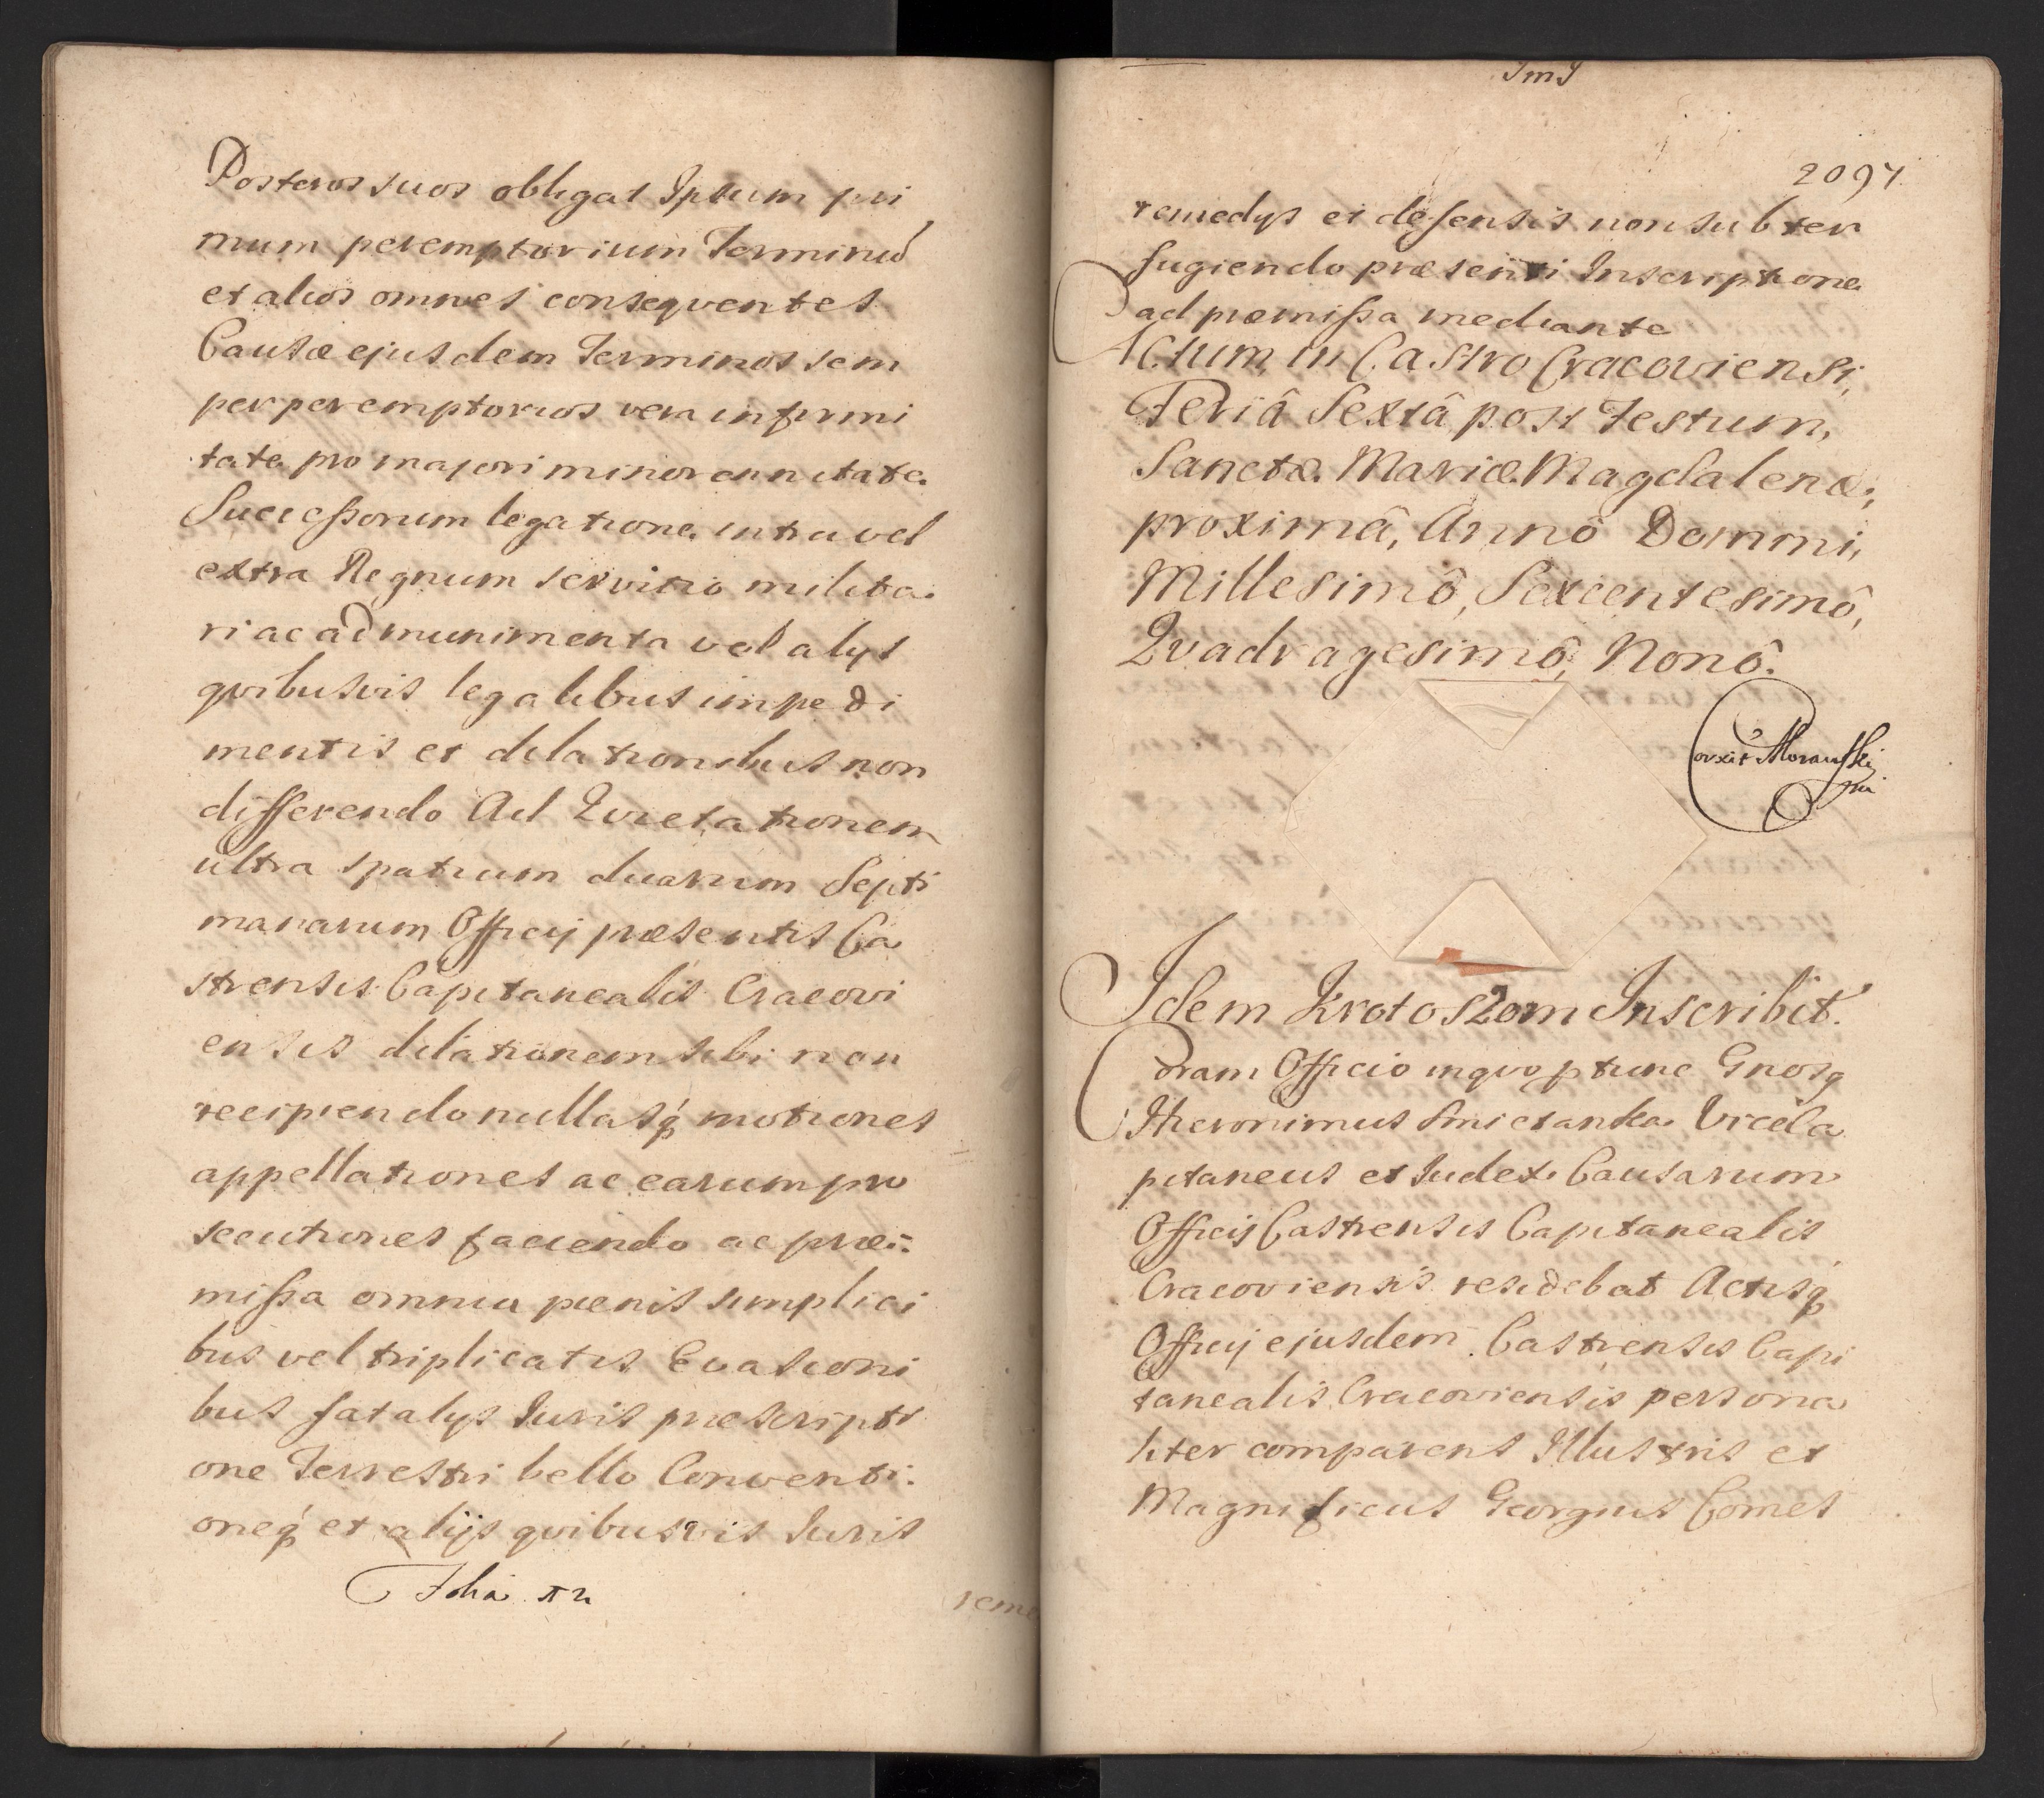 Posteros suos obligat Ipsum pri
mum peremptorium Terminū
et alios omnes conseqventes
Causæ ejusdem Terminos sem
per peremptorios vera infirmi
tate pro majori minorennitate
Successorum legatione intra vel
extra Regnum servitio milita
ri ac ad munimenta vel alys
qvibusvis legalibus impedi
mentis et dilationibus non
differendo Ad Qvietationem
ultra spatium duarum Septi
manarum Officij præsentis Ca
strensis Capitanealis Cracovi
ensis dilationem sibi non
recipiendo nullasq́ motiones
appellationes ac earum pro
secutiones faciendo ac præ
missa omnia pœnis simplici
bus vel triplicatis Evasioni
bus fatalys Iuris præscripti
one Terrestri bello Conventi
oneq́ et alijs qvibusvis Iuris
Folia
reme
2097
remedys et defensis non subter
fugiendo præsenti Inscriptione
ad præmissa mediante
Actum in Castro Cracoviensi,
Feriâ Sextâ post Festum,
Sanctæ Mariæ Magdalenæ,
proximâ, Annô Domini,
Millesimô, Sexcentesimô,
Qvadragesimô, Nonô.
Corxit Morawski
mp
Idem Krotoszom Inscribit.
Coram Officio inqvo ptunc Gnosq
Hieronimus Smietanka Viceca
pitaneus et Iudex Causarum
Officij Castrensis Capitanealis
Cracoviensis residebat Actisq́
Officij ejusdem Castrensis Capi
tanealis Cracoviensis persona
liter comparens Illustris et
Magnificus Georgius Comes